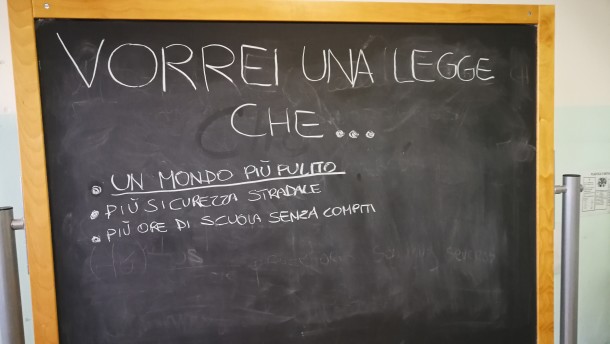 VORREI UNA LEGGE
CHE...
• UN MONDO PIÙ PULITO
• PIÙ SICUREZZA STRADALE
• PIÙ ORE DI SCUOLA SENZA COMPITI